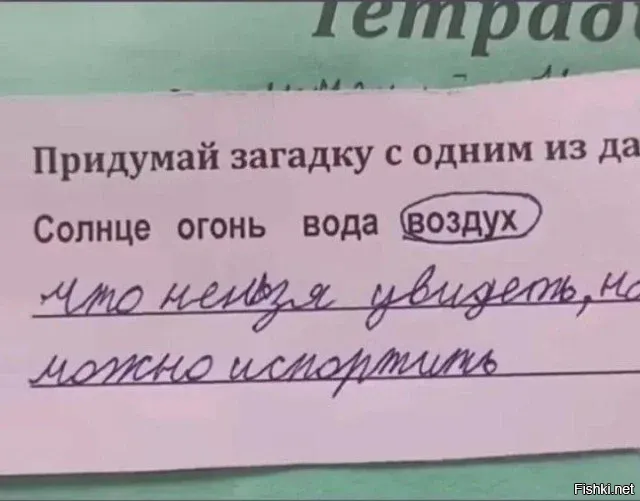 Тетрад
Придумай загадку с одним из да
Солнце огонь вода воздух
что нельзя увидеть, но
можно испортить
Fishki.net